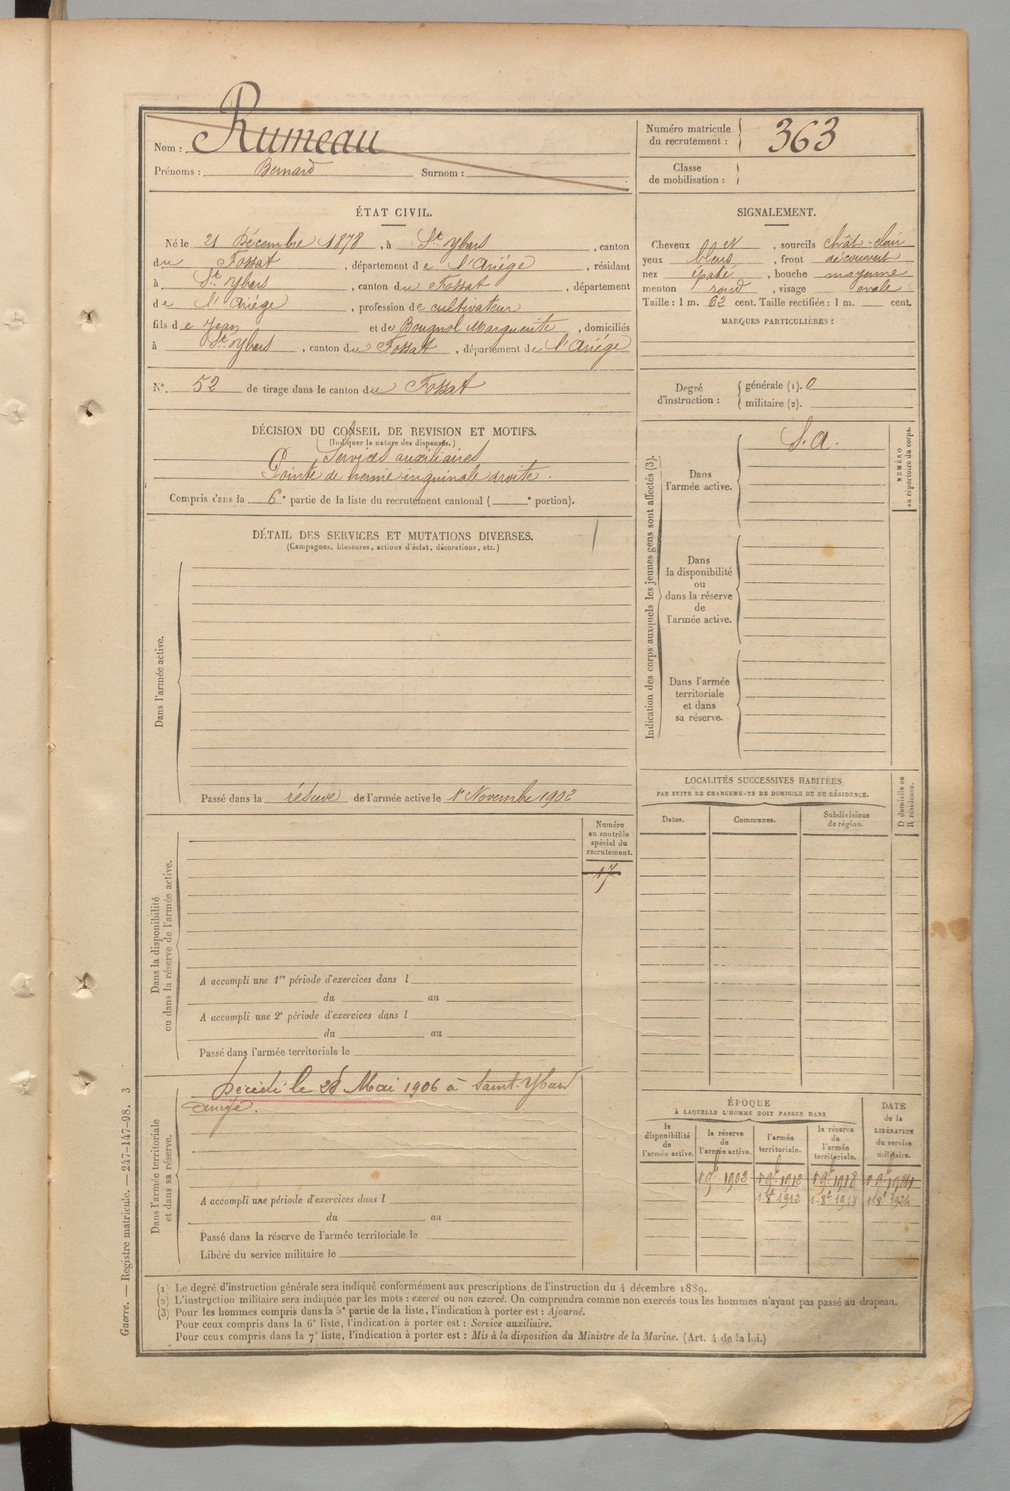 Nom : Rumeau
Prénoms : Bernard Surnom :
Numéro matricule du recrutement : 363
Classe de mobilisation :
ÉTAT CIVIL.
Né le 21 Décembre 1878, à St Ybars, canton
du Fossat, département de l'Ariège, résidant
à St Ybars, canton du Fossat, département
de l'Ariège, profession de cultivateur
fils de Jean et de Bougnol Marguerite, domiciliés
à St Ybars, canton du Fossat, département de l'Ariège
N°. 52 de tirage dans le canton du Fossat
SIGNALEMENT.
Cheveux et, sourcils chât-clair
yeux bleus, front découvert
nez épaté, bouche moyenne
menton rond, visage ovale
Taille : 1 m. 62 cent. Taille rectifiée : 1 m. cent.
MARQUES PARTICULIÈRES :
Degré d'instruction :
générale (1). 0
militaire (2).
DÉCISION DU CONSEIL DE REVISION ET MOTIFS.
(Indiquer la nature des dispenses.)
Services auxiliaires
Pointe de hernie inguinale droite.
Compris dans la 6e partie de la liste du recrutement cantonal ( e portion).
DÉTAIL DES SERVICES ET MUTATIONS DIVERSES.
(Campagnes, blessures, actions d'éclat, décorations, etc.)
Dans l'armée active.
Passé dans la réserve de l'armée active le 1er Novembre 1902
Indication des corps auxquels les jeunes gens sont affectés (3).
Dans l'armée active.
S. A.
NUMÉRO au répertoire du corps.
Dans la disponibilité ou dans la réserve de l'armée active.
Dans l'armée territoriale et dans sa réserve.
LOCALITÉS SUCCESSIVES HABITÉES
PAR SUITE DE CHANGEMENTS DE DOMICILE OU DE RÉSIDENCE.
Dates.
Communes.
Subdivisions de région.
D domicile ou R résidence.
Numéro au contrôle spécial du recrutement.
17
Dans la disponibilité ou dans la réserve de l'armée active.
A accompli une 1re période d'exercices dans l
du au
A accompli une 2e période d'exercices dans l
du au
Passé dans l'armée territoriale le
Dans l'armée territoriale et dans sa réserve.
Décédé le 28 Mai 1906 à Saint-Ybars
Ariège.
A accompli une période d'exercices dans l
du au
Passé dans la réserve de l'armée territoriale le
Libéré du service militaire le
ÉPOQUE
À LAQUELLE L'HOMME DOIT PASSER DANS
la disponibilité de l'armée active.
la réserve de l'armée active.
l'armée territoriale.
la réserve de l'armée territoriale.
DATE de la LIBÉRATION du service militaire.
1 9e 1902 1 9e 1912 1 9e 1918
1 8e 1912 1-8e 1918 1 8e 1924
(1) Le degré d'instruction générale sera indiqué conformément aux prescriptions de l'instruction du 4 décembre 1889.
(2) L'instruction militaire sera indiquée par les mots : exercé ou non exercé. On comprendra comme non exercés tous les hommes n'ayant pas passé au drapeau.
(3) Pour les hommes compris dans la 5e partie de la liste, l'indication à porter est : Ajourné.
Pour ceux compris dans la 6e liste, l'indication à porter est : Service auxiliaire.
Pour ceux compris dans la 7e liste, l'indication à porter est : Mis à la disposition du Ministre de la Marine. (Art. 4 de la loi.)
Guerre. — Registre matricule. — 247-147-98. 3